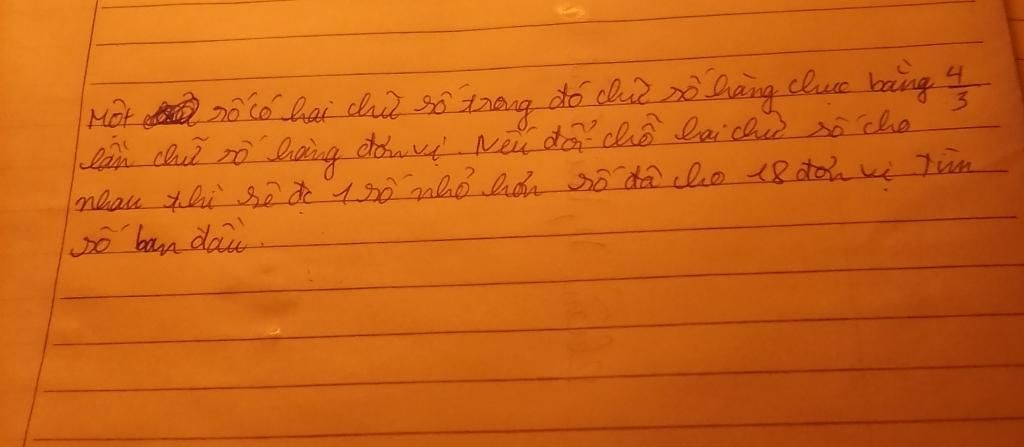 Một số có hai chữ số trong đó chữ số hàng chục bằng 4/3
lần chữ số hàng đơn vị. Nếu đổi chỗ hai chữ số cho
nhau thì sẽ đc 1 số nhỏ hơn số đã cho 18 đơn vị Tìm
số ban đầu.